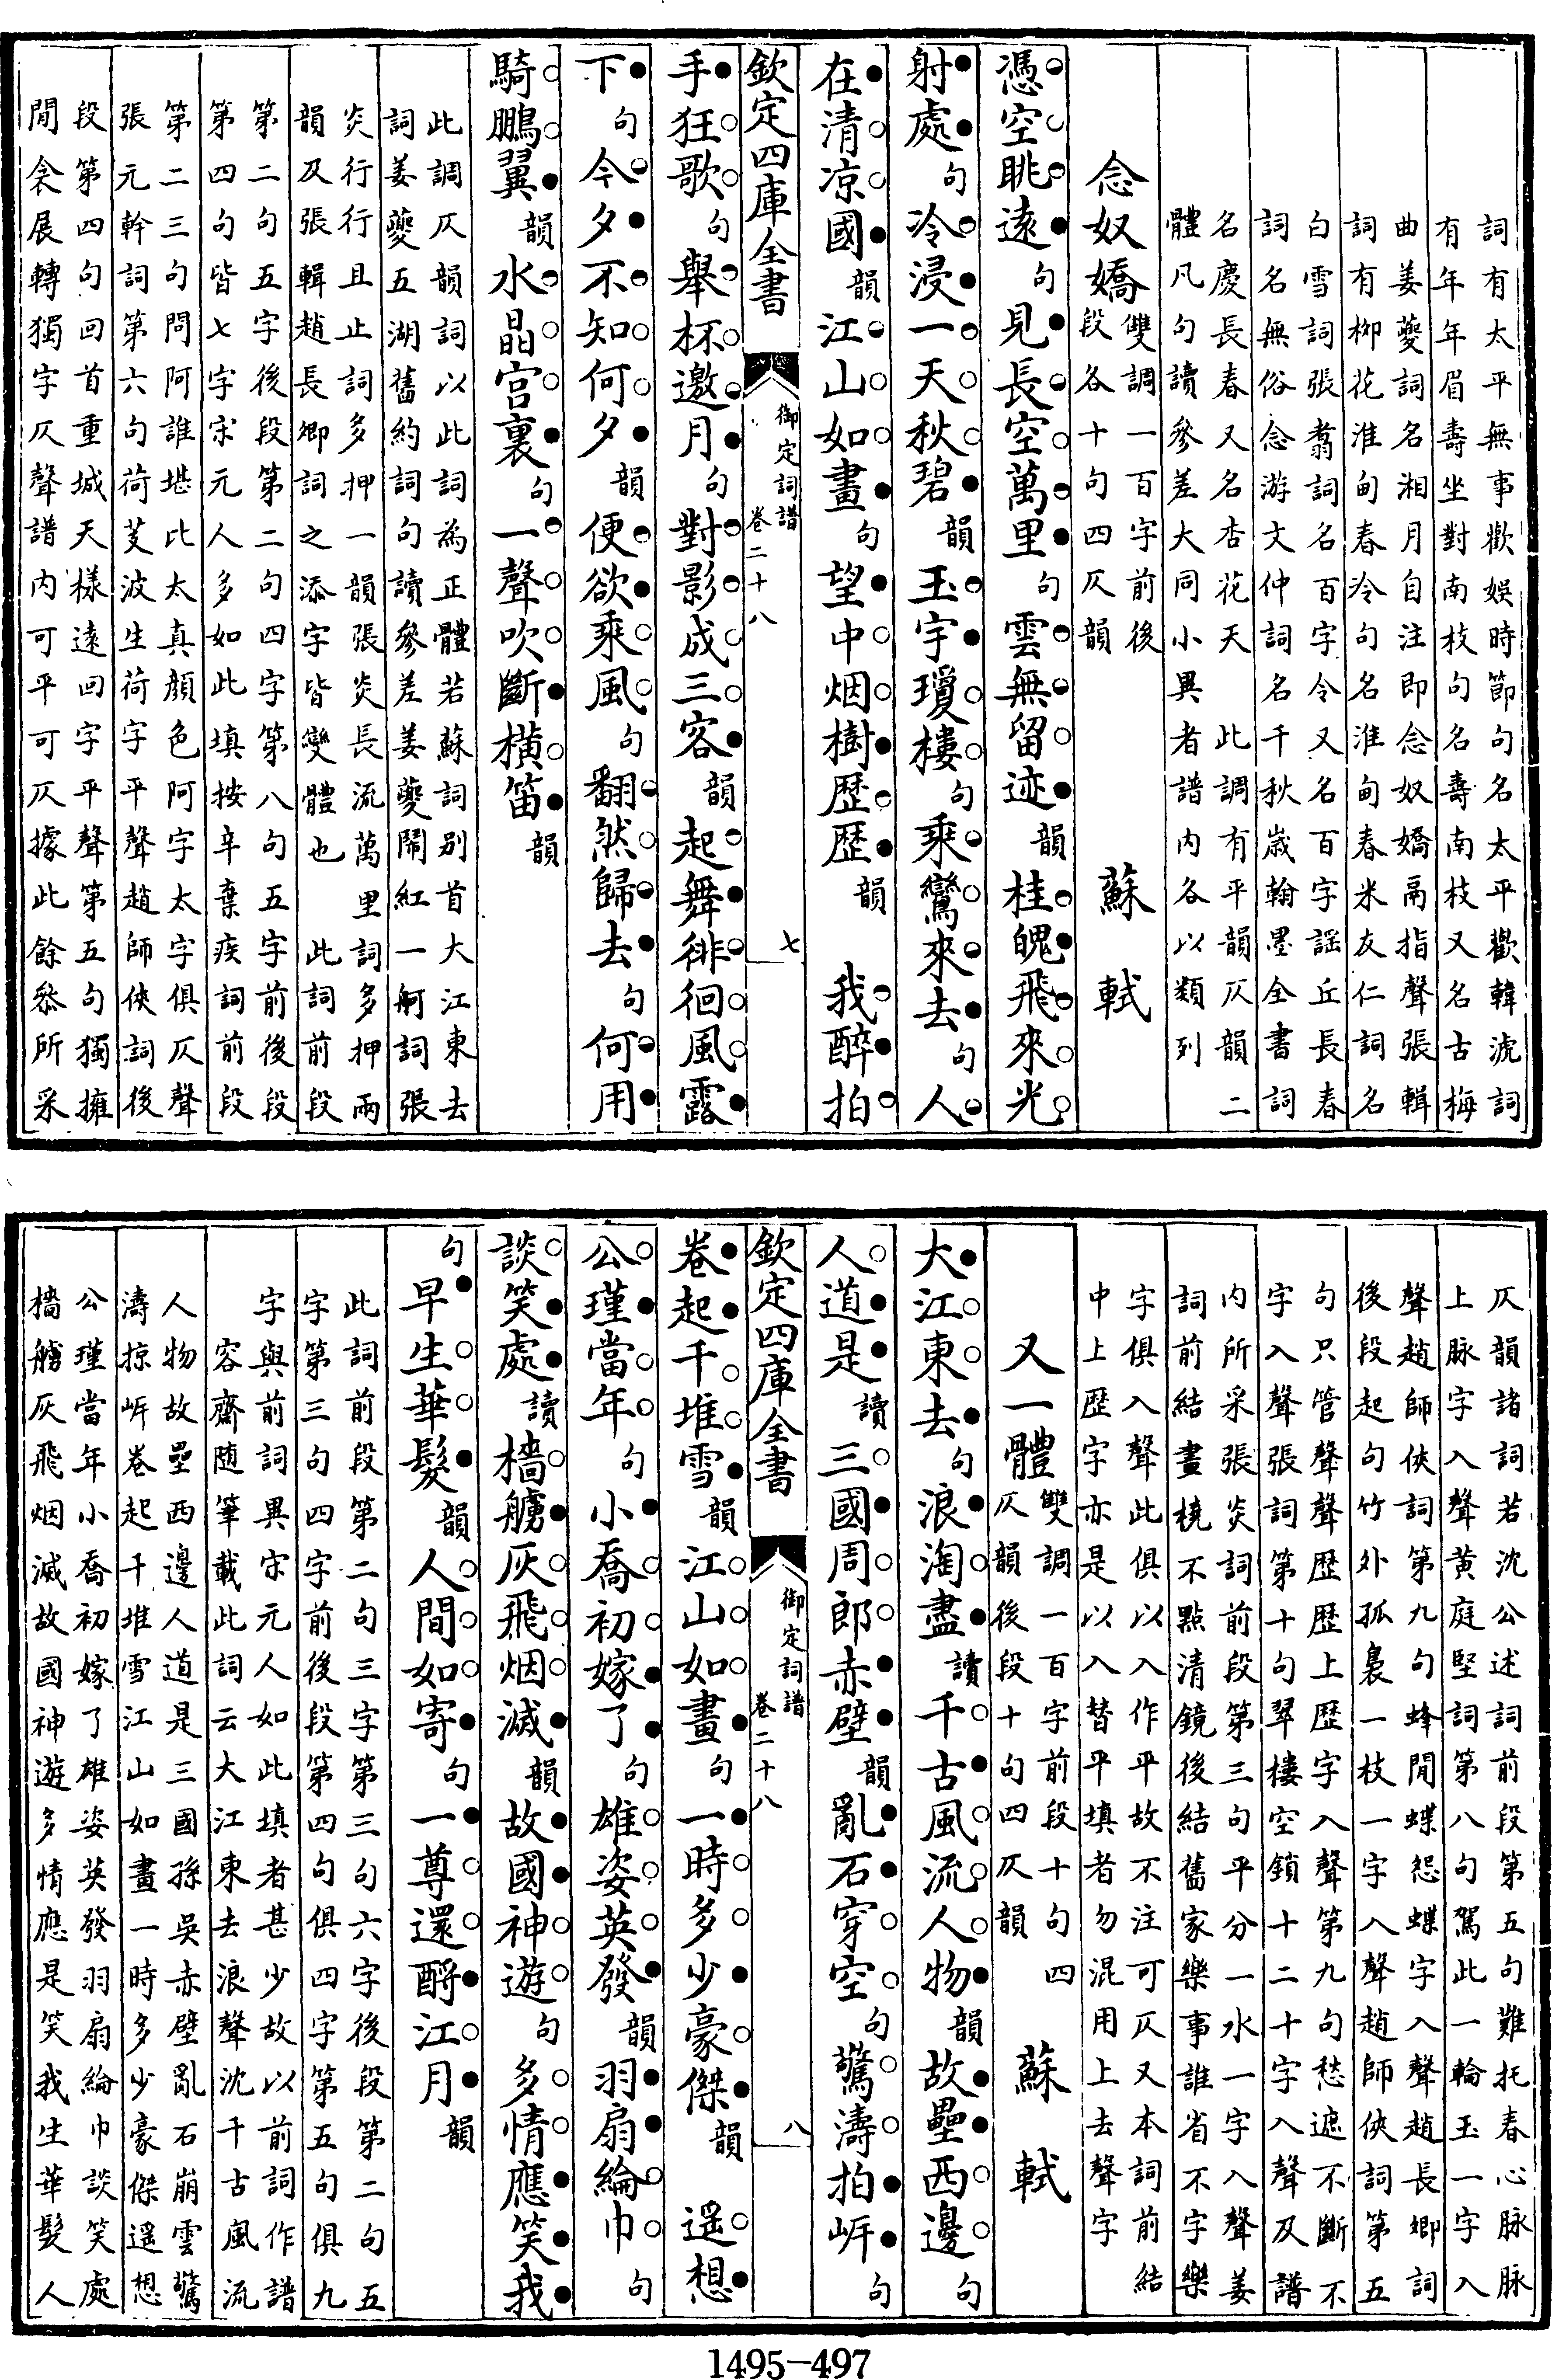 詞有太平無事歡娱時節句名太平歡韓淲詞
有年年眉壽坐對南枝句名壽南枝又名古梅
曲姜夔詞名湘月自注即念奴嬌鬲指聲張輯
詞有栁花淮甸春泠句名淮甸春米友仁詞名
白雪詞張翥詞名百字令又名百字謡丘長春
詞名無俗念游文仲詞名千秋歳翰墨全書詞
名慶長春又名杏花天　此調有平韻仄韻二
體凡句讀參差大同小異者譜内各以類列
念奴嬌　雙調一百字前後
段各十句四仄韻　蘇軾
憑空眺逺句見長空萬里句雲無留迹韻桂魄飛來光
射處句冷浸一天秋碧韻玉宇瓊樓句乘鸞來去句人
在清凉國韻江山如畫句望中烟樹歴歴韻　我醉拍
欽定四庫全書　御定詞譜　卷二十八　七
手狂歌句舉杯邀月句對影成三客韻起舞徘徊風露
下句今夕不知何夕韻便欲乘風句翻然歸去句何用
騎鵬翼韻水晶宫裏句一聲吹斷横笛韻
此調仄韻詞以此詞為正體若蘇詞别首大江東去
詞姜夔五湖舊約詞句讀參差姜夔鬧紅一舸詞張
炎行行且止詞多押一韻張炎長流萬里詞多押兩
韻及張輯趙長卿詞之添字皆變體也　此詞前段
第二句五字後段第二句四字第八句五字前後段
第四句皆七字宋元人多如此填按辛棄疾詞前段
第二三句問阿誰堪比太真顔色阿字太字俱仄聲
張元幹詞第六句荷芰波生荷字平聲趙師俠詞後
段第四句回首重城天樣逺回字平聲第五句獨擁
閒衾展轉獨字仄聲譜内可平可仄據此餘叅所采
仄韻諸詞若沈公述詞前段第五句難托春心脉脉
上脉字入聲黄庭堅詞第八句駕此一輪玉一字入
聲趙師俠詞第九句蜂閒蝶怨蝶字入聲趙長卿詞
後段起句竹外孤裊一枝一字入聲趙師俠詞第五
句只管聲聲歴歴上歴字入聲第九句愁遮不斷不
字入聲張詞第十句翠樓空鎖十二十字入聲及譜
内所采張炎詞前段第三句平分一水一字入聲姜
詞前結畫橈不㸃清鏡後結舊家樂事誰省不字樂
字俱入聲此俱以入作平故不注可仄又本詞前結
中上歴字亦是以入替平填者勿混用上去聲字
又一體　雙調一百字前段十句四
仄韻後段十句四仄韻　蘇軾
大江東去句浪淘盡讀千古風流人物韻故壘西邊句
人道是讀三國周郎赤壁韻亂石穿空句驚濤拍岍句
欽定四庫全書　御定詞譜　卷二十八　八
卷起千堆雪韻江山如畫句一時多少豪傑韻　遥想
公瑾當年句小喬初嫁了句雄姿英發韻羽扇綸巾句
談笑處讀檣艣灰飛烟滅韻故國神遊句多情應笑我
句早生華髮韻人間如寄句一尊還酹江月韻
此詞前段第二句三字第三句六字後段第二句五
字第三句四字前後段第四句俱四字第五句俱九
字與前詞異宋元人如此填者甚少故以前詞作譜
容齋随筆載此詞云大江東去浪聲沈千古風流
人物故壘西邊人道是三國孫吳赤壁亂石崩雲驚
濤掠岍卷起千堆雪江山如畫一時多少豪傑遥想
公瑾當年小喬初嫁了雄姿英發羽扇綸巾談笑處
檣艣灰飛烟滅故國神遊多情應是笑我生華髮人
1495-497